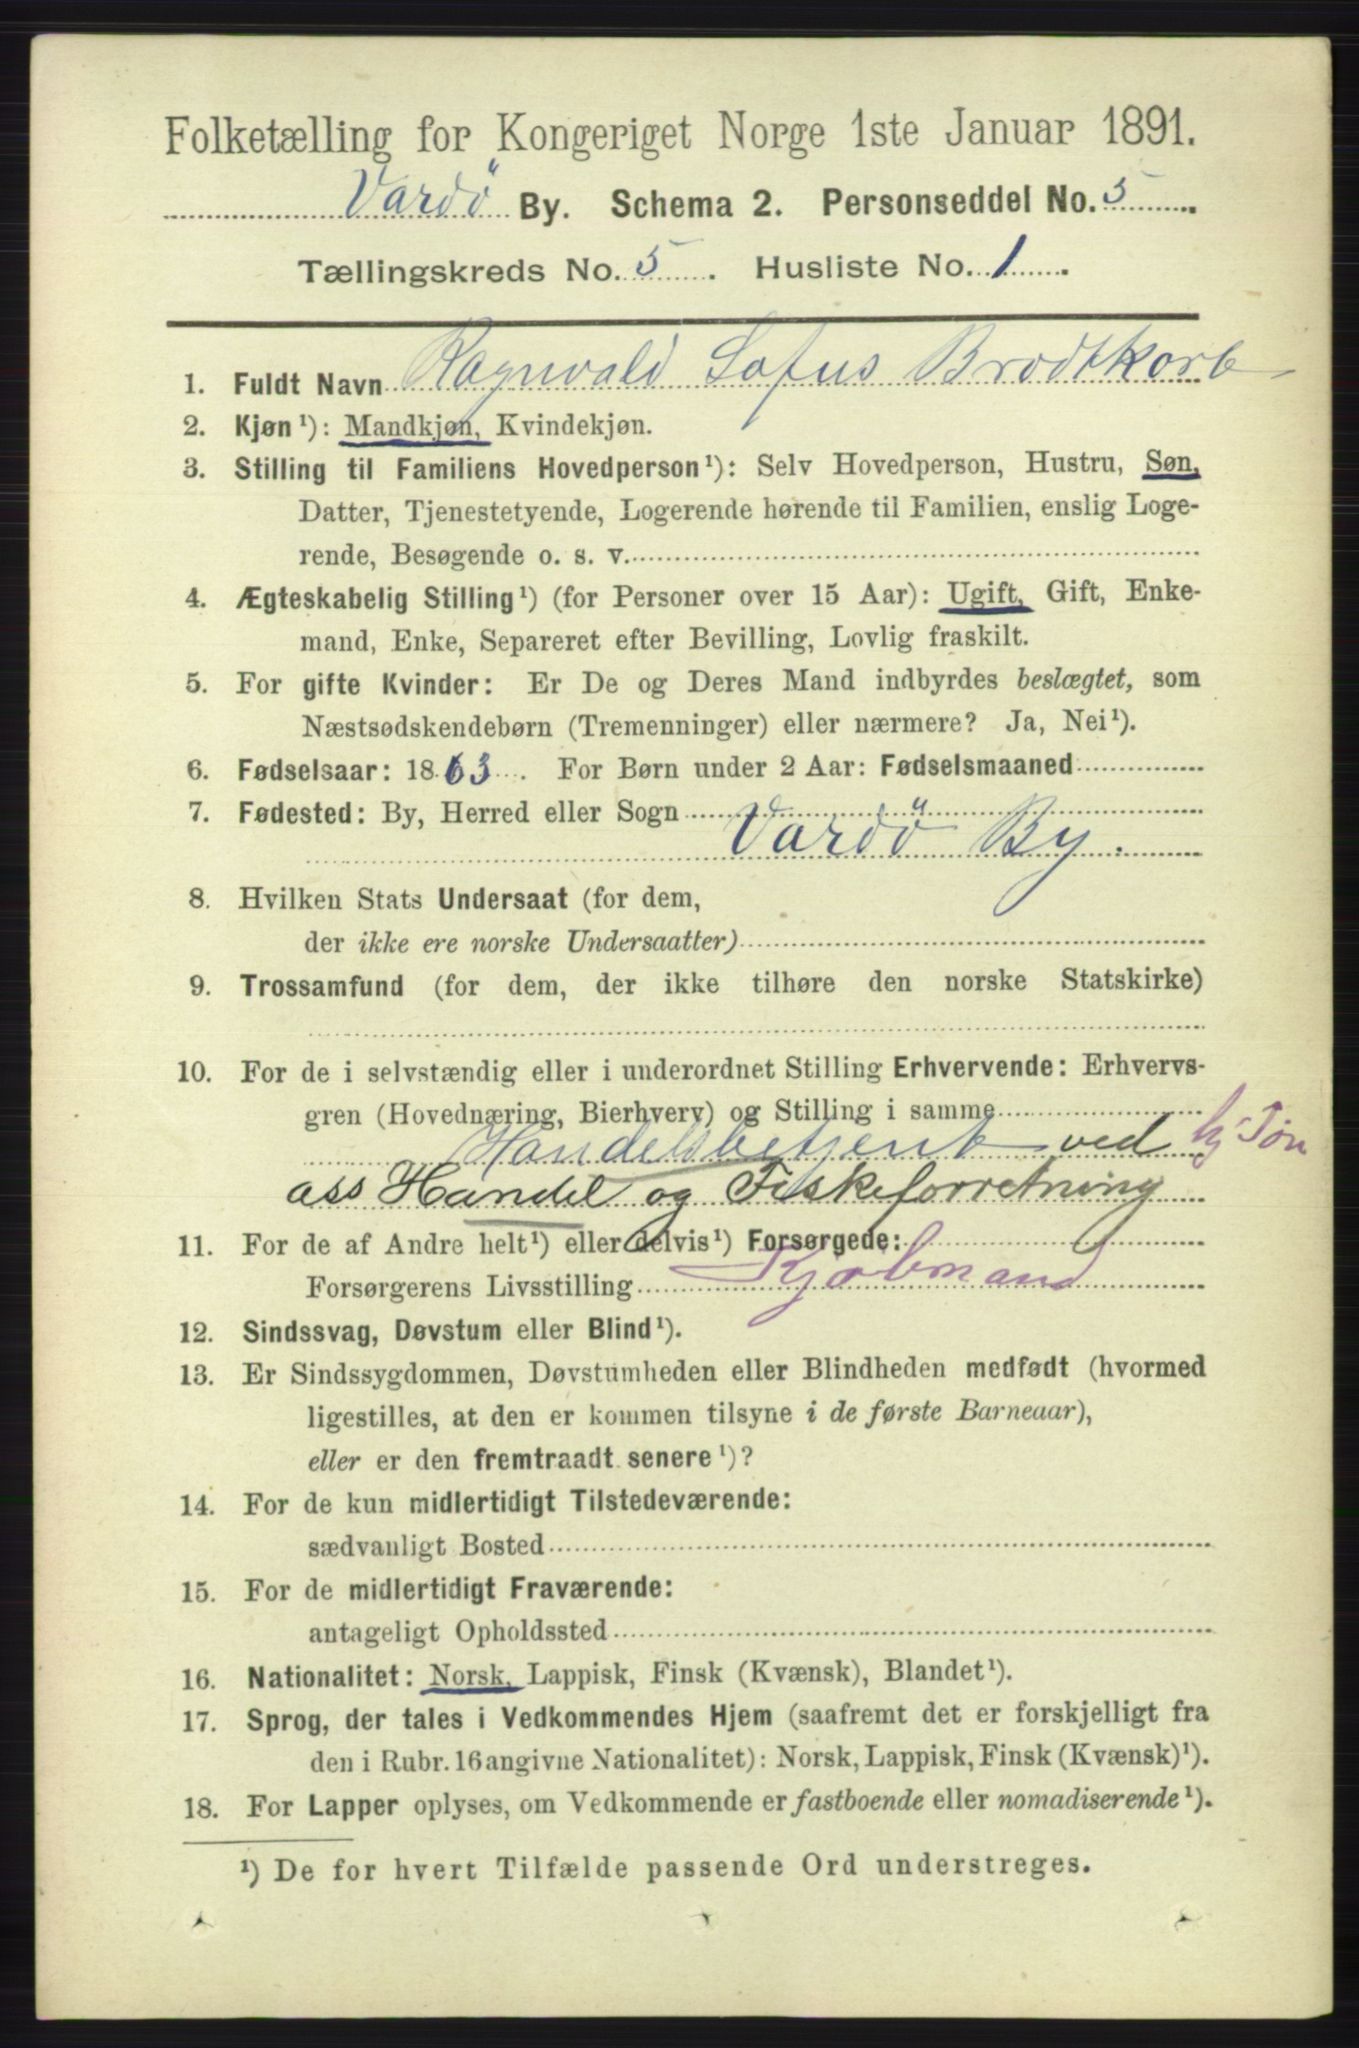 Folketælling for Kongeriget Norge 1ste Januar 1891.
Vardö By. Schema 2. Personseddel No. 5
Tællingskreds No. 5. Husliste No. 1.
1. Fuldt Navn Ragnvald Sofus Brodtkorb
2. Kjøn¹): Mandkjøn, Kvindekjøn.
3. Stilling til Familiens Hovedperson¹): Selv Hovedperson, Hustru, Søn,
Datter, Tjenestetyende, Logerende hørende til Familien, enslig Loge-
rende, Besøgende o. s. v.
4. Ægteskabelig Stilling¹) (for Personer over 15 Aar): Ugift, Gift, Enke-
mand, Enke, Separeret efter Bevilling, Lovlig fraskilt.
5. For gifte Kvinder: Er De og Deres Mand indbyrdes beslægtet, som
Næstsødskendebørn (Tremenninger) eller nærmere? Ja, Nei¹).
6. Fødselsaar: 1863. For Børn under 2 Aar: Fødselsmaaned
7. Fødested: By, Herred eller Sogn
Vardö By.
8. Hvilken Stats Undersaat (for dem,
der ikke ere norske Undersaatter)
9. Trossamfund (for dem, der ikke tilhøre den norske Statskirke)
10. For de i selvstændig eller i underordnet Stilling Erhvervende: Erhvervs-
gren (Hovednæring, Bierhverv) og Stilling i samme
Handelsbetjent ved
ass Handel og Fiskeforretning
11. For de af Andre helt¹) eller delvis¹) Forsørgede:
Forsørgerens Livsstilling Kjøbmand
12. Sindssvag, Døvstum eller Blind¹).
13. Er Sindssygdommen, Døvstumheden eller Blindheden medfødt (hvormed
ligestilles, at den er kommen tilsyne i de første Barneaar),
eller er den fremtraadt senere¹)?
14. For de kun midlertidigt Tilstedeværende:
sædvanligt Bosted
15. For de midlertidigt Fraværende:
antageligt Opholdssted
16. Nationalitet: Norsk, Lappisk, Finsk (Kvænsk), Blandet¹).
17. Sprog, der tales i Vedkommendes Hjem (saafremt det er forskjelligt fra
den i Rubr. 16 angivne Nationalitet): Norsk, Lappisk, Finsk (Kvænsk)¹).
18. For Lapper oplyses, om Vedkommende er fastboende eller nomadiserende¹).
¹) De for hvert Tilfælde passende Ord understreges.